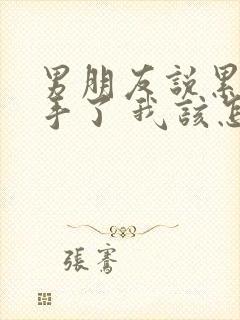 男朋友说累
手了我該怎
張騫